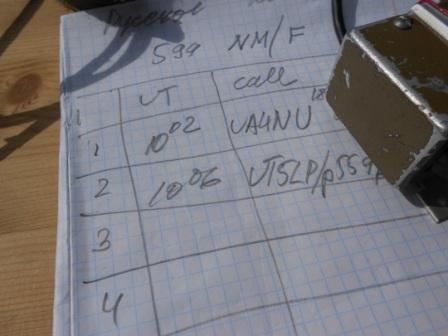 Русское
599 NM/F
UT call
1 10 02 UA4NU
2 10 06 UT5LP/p 559
3
4